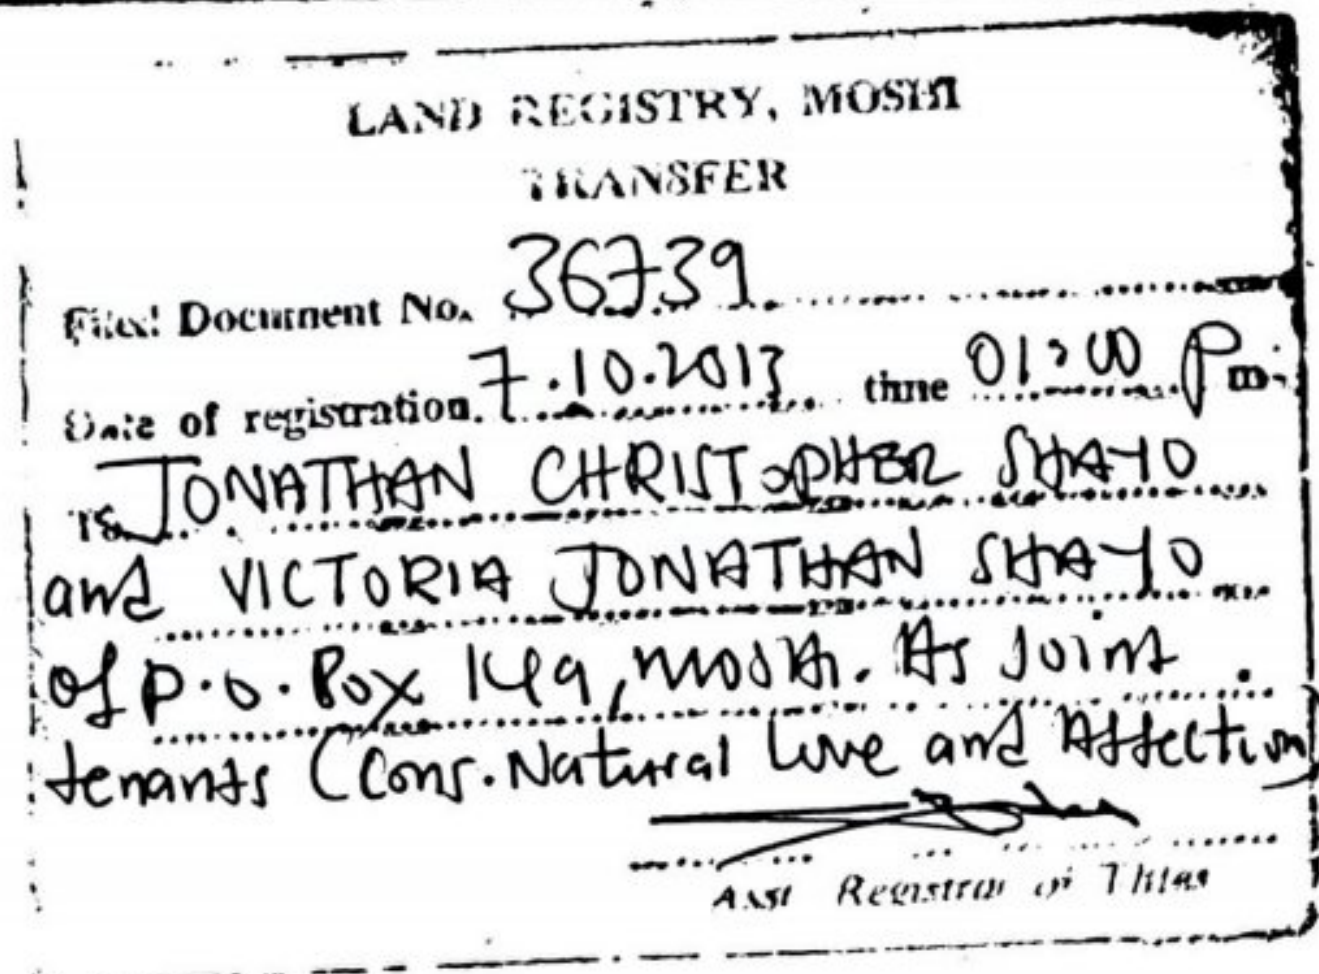 LAND REGISTRY, MOSHI
TRANSFER
Filed Document No. 36739
Date of registration 7.10.2013 time 01:00 Pm.
To JONATHAN CHRISTOPHER SHAYO
and VICTORIA JONATHAN SHAYO
of P.O. Box 149, Moshi. As Joint
tenants (Cons. Natural Love and Affection)
Asst Registrar of Titles